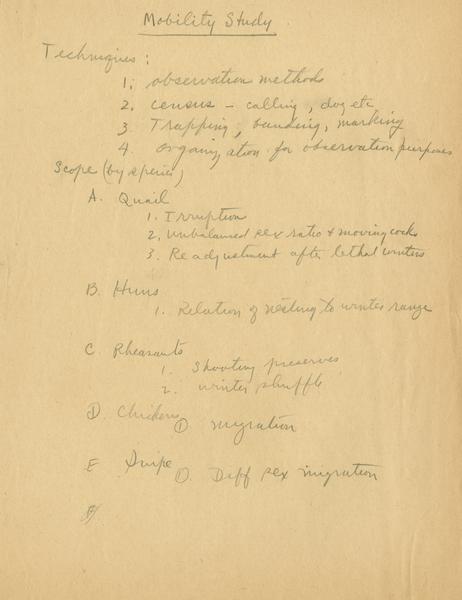 Mobility Study.
Techniques:
1. observation methods
2. census - calling, dog etc
3 Trapping, banding, marking
4. organization for observation purposes
Scope (by species)
A. Quail
1. Irruption
2. Unbalanced sex ratio & moving cocks
3. Readjustment after lethal winters
B. Huns
1. Relation of nesting to winter range
C. Pheasants
1. Shooting preserves
2. winter shuffle
D. Chickens
①. migration
E Snipe
①. Diff sex migration
F)